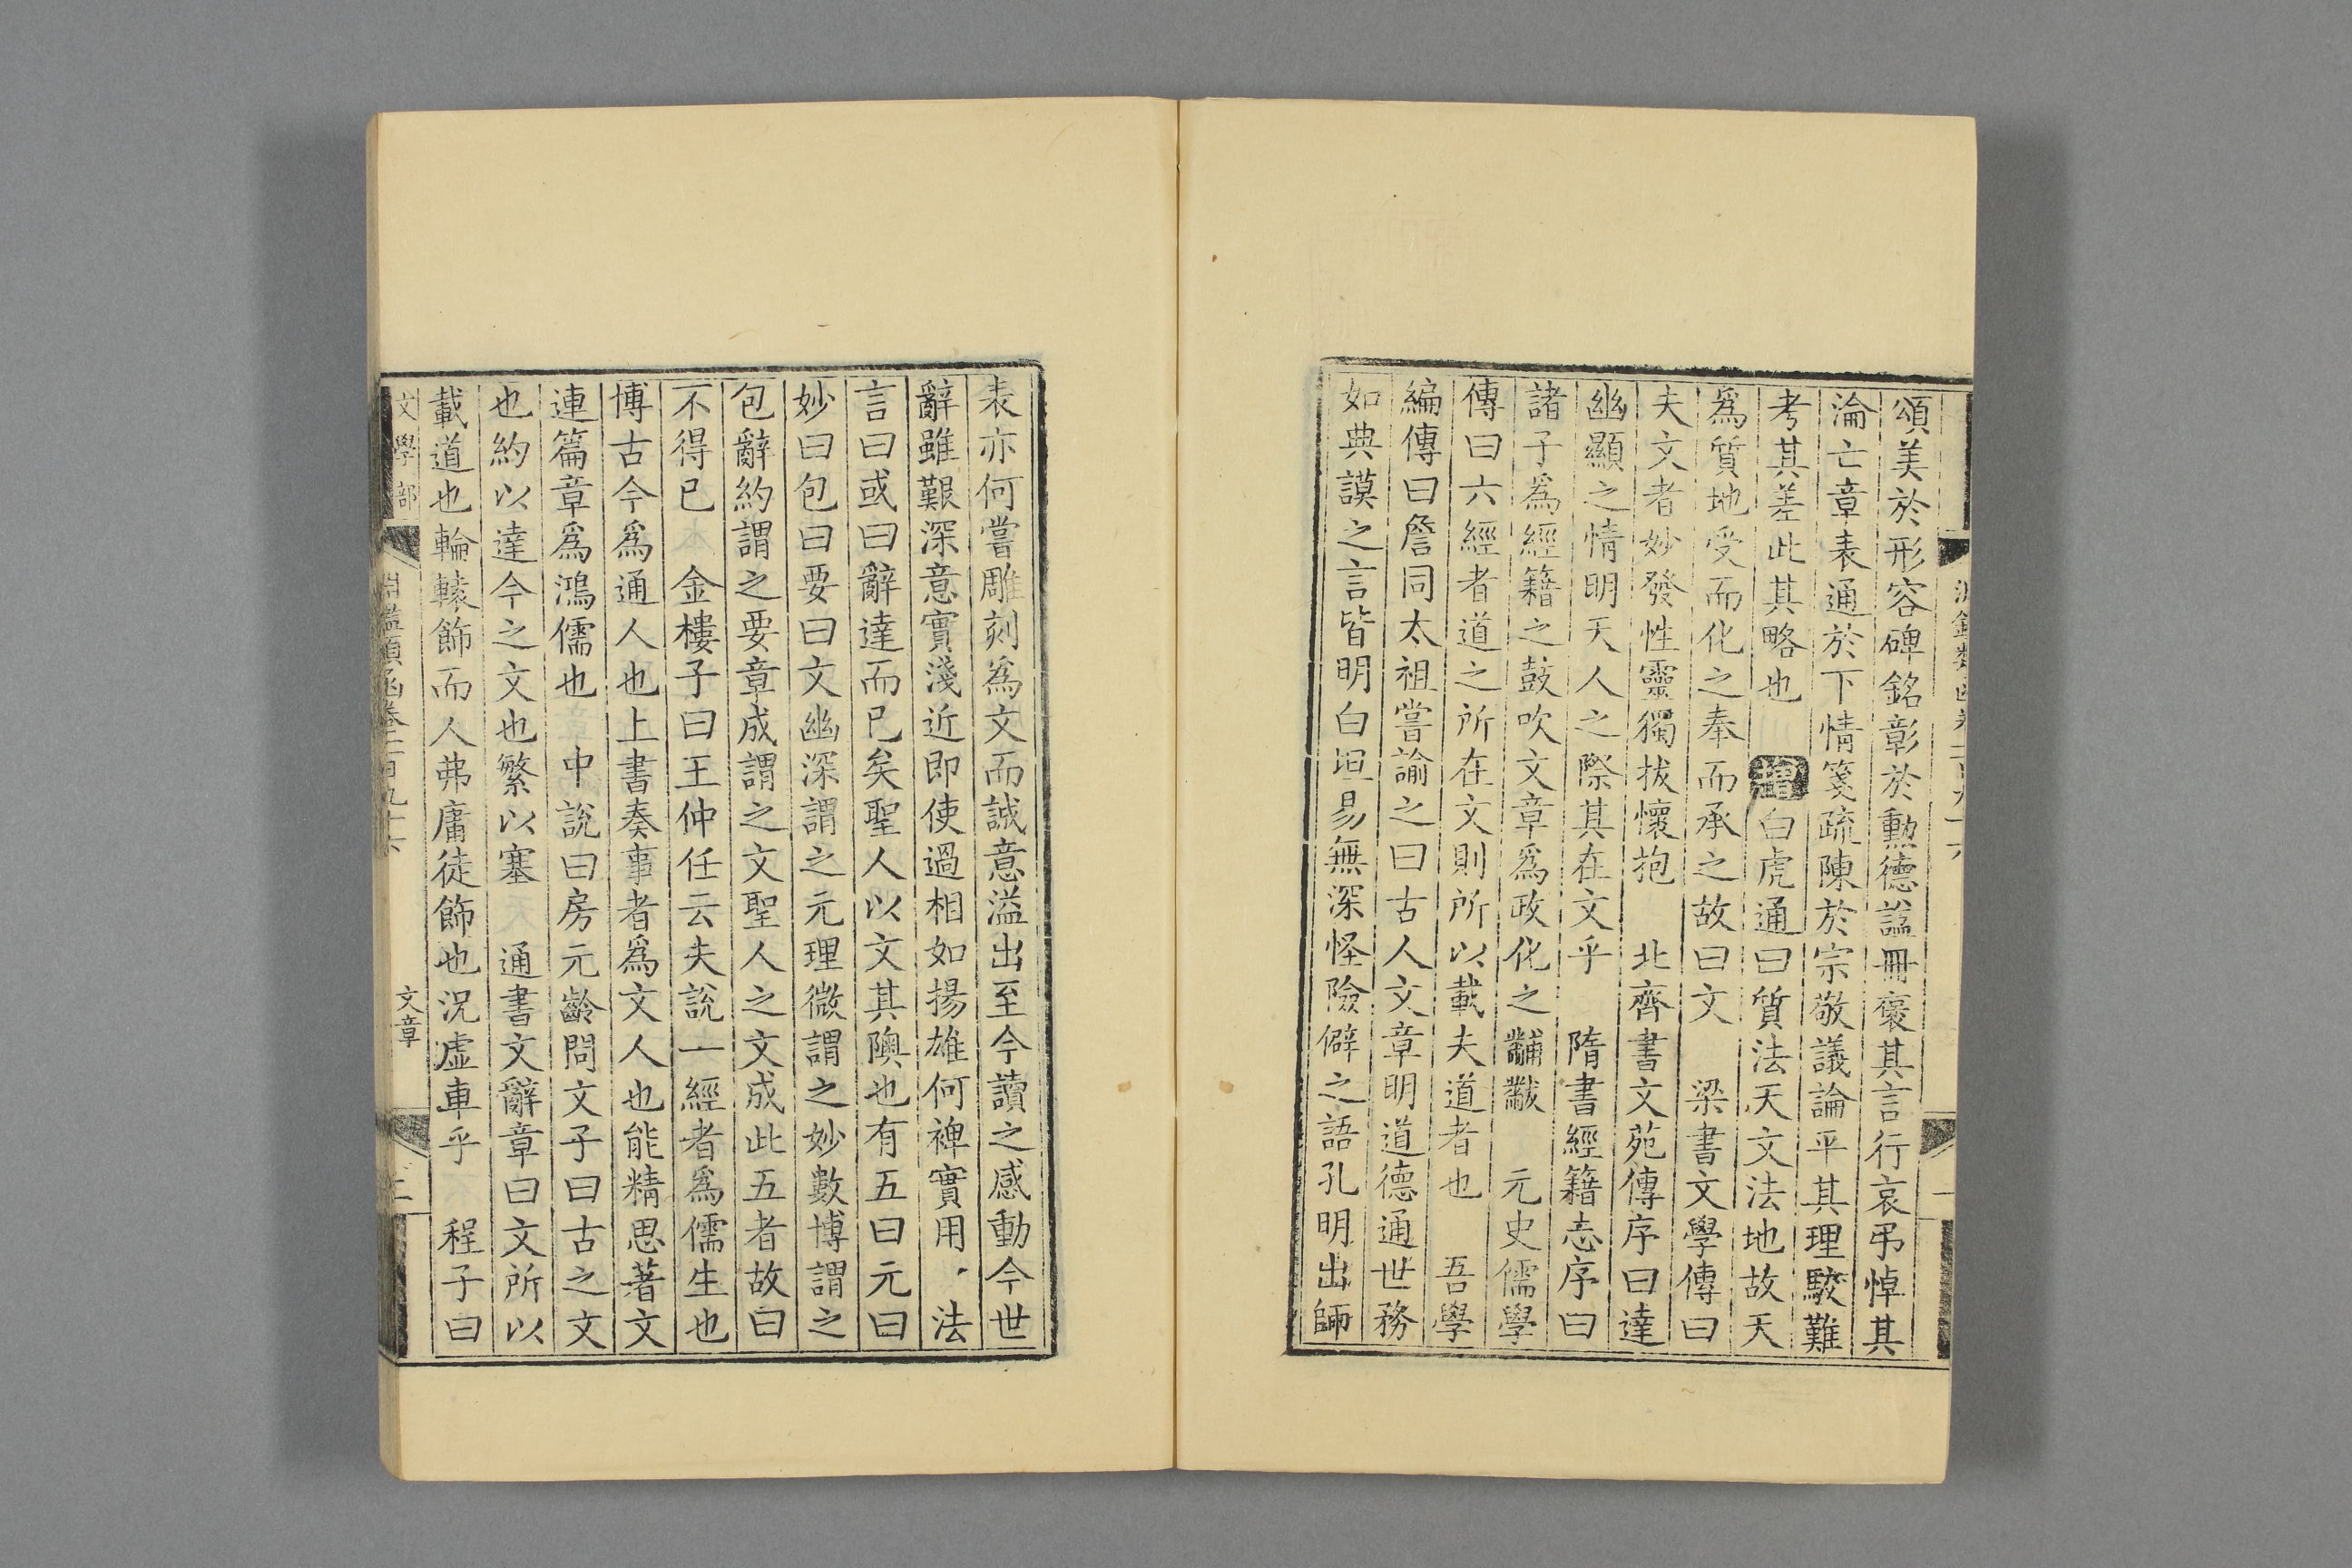 頌美於形容碑銘彰於勲德諡冊褒其言行哀弔悼其
淪亡章表通於下情箋疏陳於宗敬議論平其理駮難
考其差此其略也 增白虎通曰質法天文法地故天
爲質地受而化之奉而承之故曰文 梁書文學傳曰
夫文者妙發性靈獨拔懷抱 北齊書文苑傳序曰達
幽顯之情明天人之際其在文乎 隋書經籍志序曰
諸子爲經籍之鼓吹文章爲政化之黼黻 元史儒學
傳曰六經者道之所在文則所以載夫道者也 吾學
編傳曰詹同太祖嘗諭之曰古人文章明道德通世務
如典謨之言皆明白坦易無深怪險僻之語孔明出師
表亦何嘗雕刻爲文而誠意溢出至今讀之感動今世
辭雖艱深意實淺近即使過相如揚雄何裨實用 法
言曰或曰辭達而已矣聖人以文其隩也有五曰元曰
妙曰包曰要曰文幽深謂之元理微謂之妙數博謂之
包辭約謂之要章成謂之文聖人之文成此五者故曰
不得已 金樓子曰王仲任云夫說一經者爲儒生也
博古今爲通人也上書奏事者爲文人也能精思著文
連篇章爲鴻儒也 中說曰房元齡問文子曰古之文
也約以達今之文也繁以塞 通書文辭章曰文所以
載道也輪轅飾而人弗庸徒飾也況虛車乎 程子曰
文學部 淵鑑類函卷二百九十六 文章 二